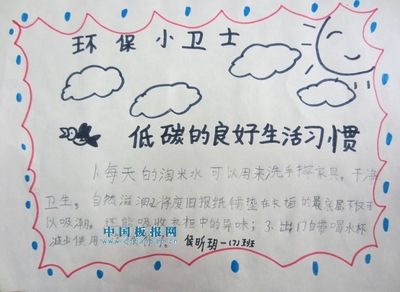 环保小卫士
低碳的良好生活习惯
1.每天的淘米水可以用来洗手擦家具，干净
卫生，自然滋润2.将废旧报纸铺垫在衣橱的最底层不仅可
以吸潮，还能吸收衣柜中的异味；3.出门自带喝水杯
减少使用
中国板报网
侯昕玥一(7)班